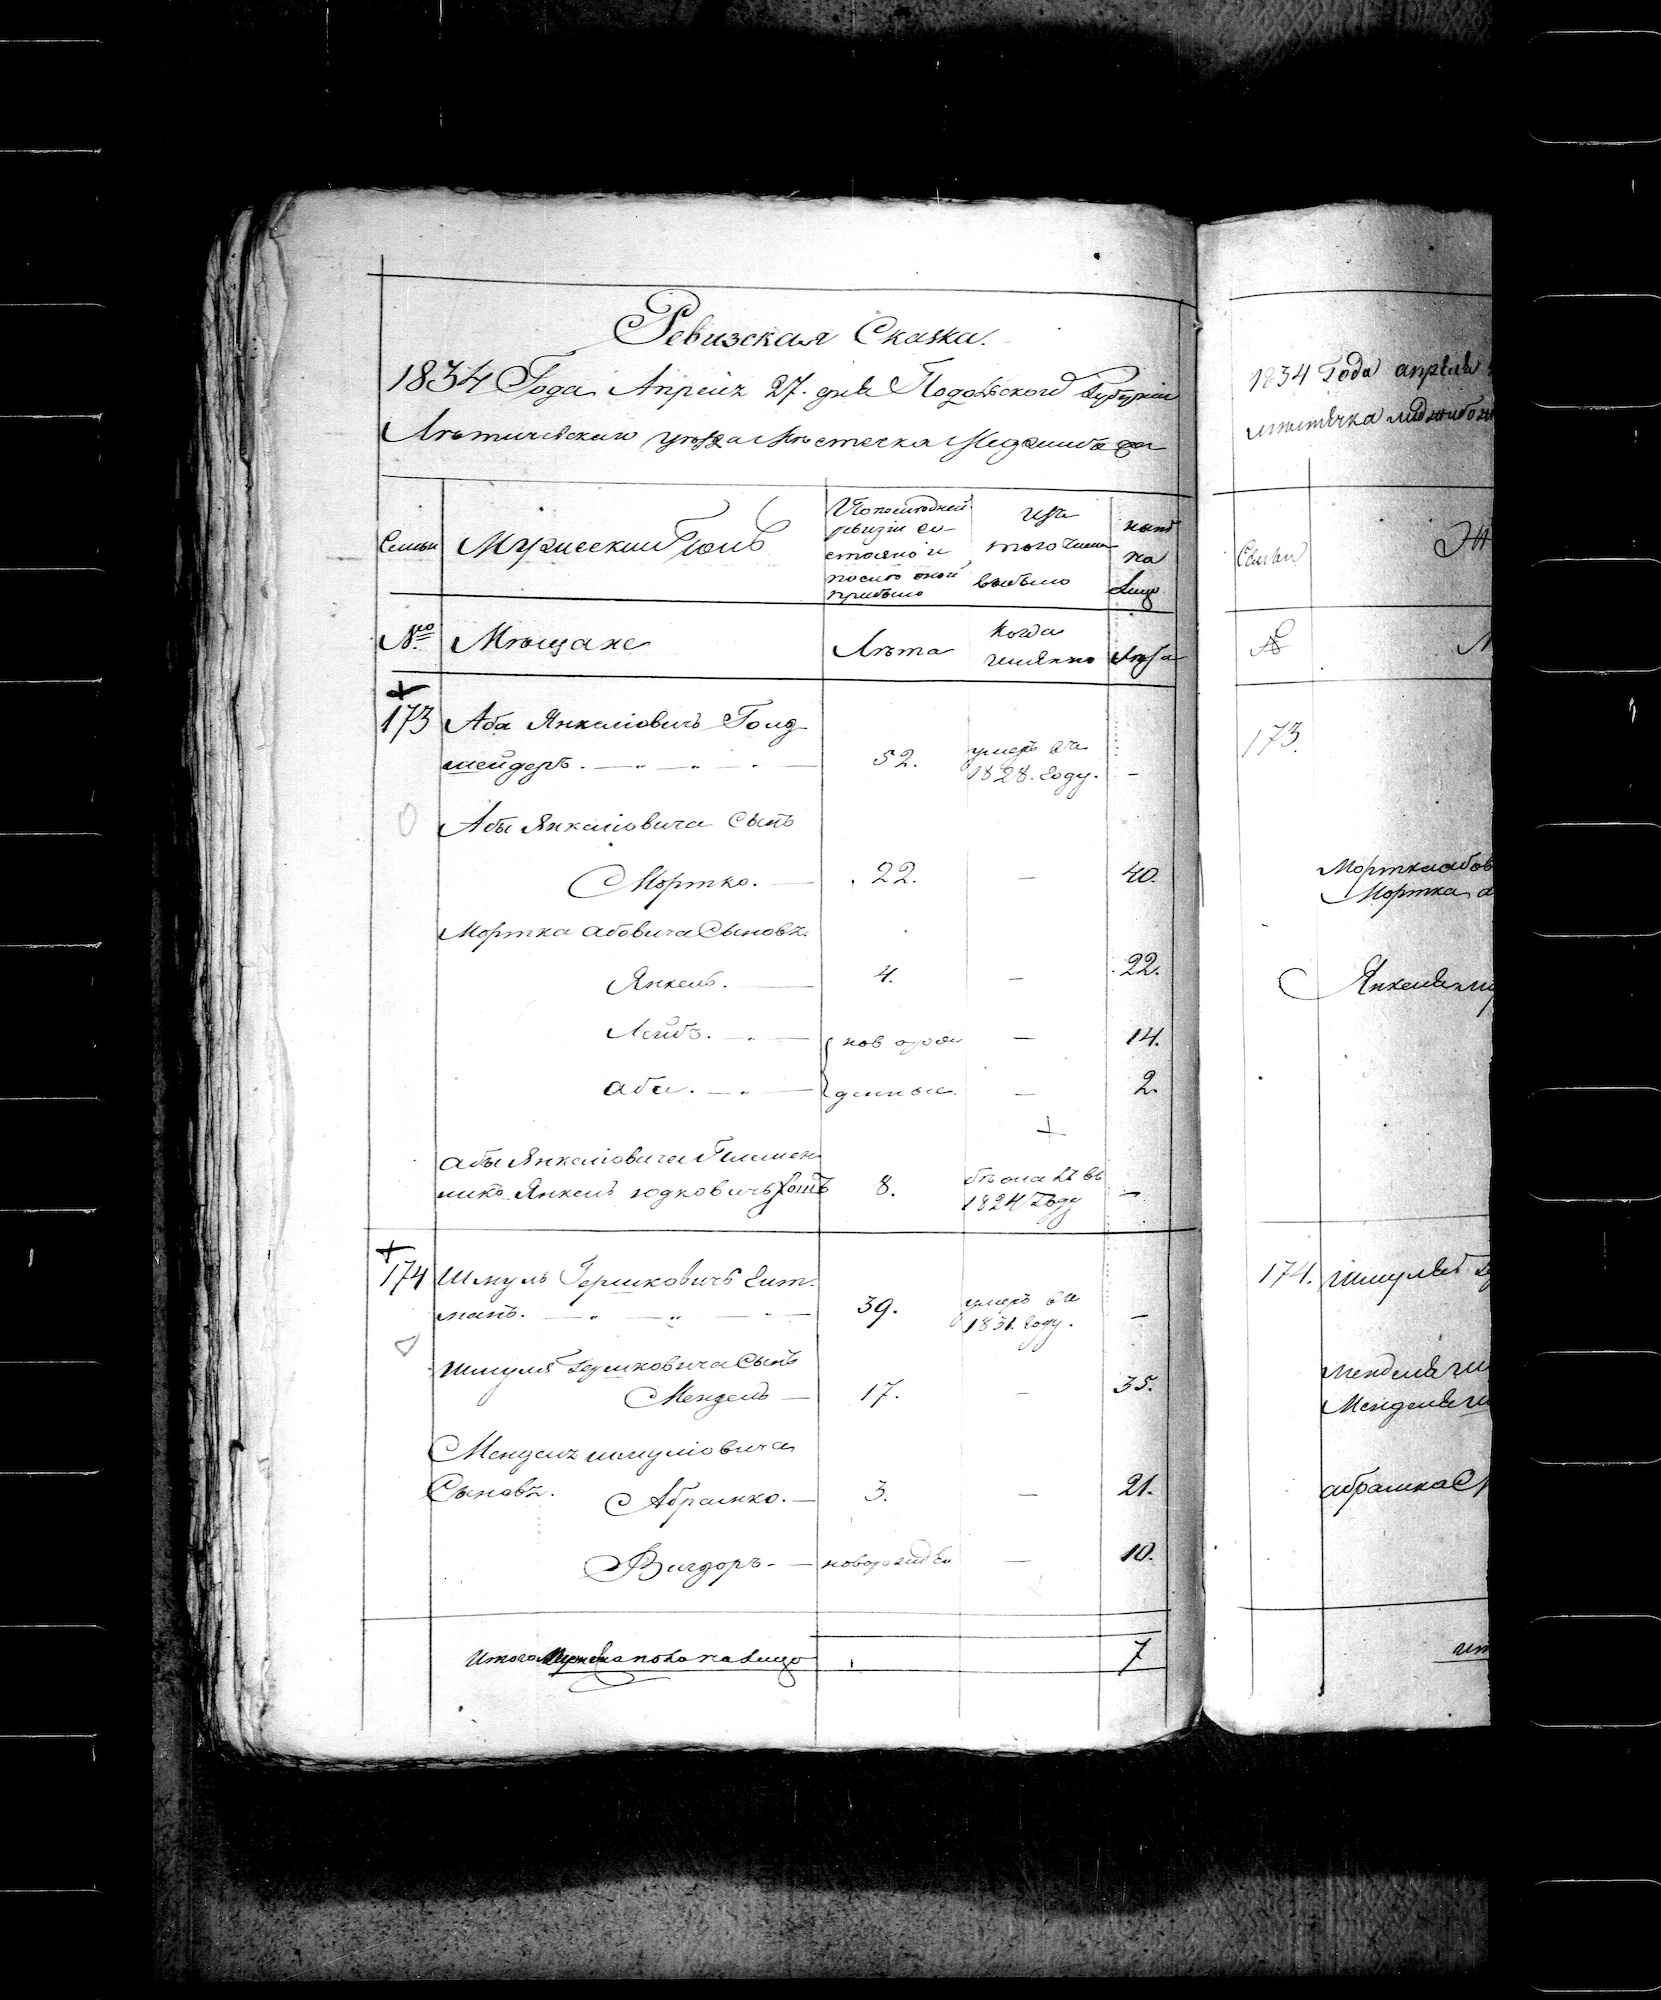 Ревизская Сказка.
1834 Года Апреля 27. дня Подольской Губернии
Летичевского уезда Местечка Меджибожа
Семьи
Мужеский Полъ
По последней
ревизии со-
стояло и
после оной
прибыло
Изъ
того числа
выбыло
ныне
на
лицо
№
Мещане
Лета
Когда
именно
Лета
173 Аба Янкелiовичъ Голд
шмейдеръ. 52. умеръ въ
1828. году. –
Абы Янкелiовича Сынъ
Мортко. 22. – 40.
Мортка абовича Сыновья.
Янкель. 4. – 22.
Лейбъ. новорож – 14.
аба. денные. – 2.
абы Янкелiовича Племен
никъ Янкель юдковичъ 8. въ
1824 Году –
174 Шмуль Гершковичъ
манъ. 39. умеръ въ
1831. году. –
Шмуля Гершковича Сынъ
Мендель – 17. – 35.
Менделя шмулiовича
Сыновья. Абрамко. – 3. – 21.
Вигдоръ. – новорожденъ – 10.
Итого Мужеска пола на лицо 7
1834 Года апреля
местечка меджибож
Семьи
№
173.
Мортка абов
Мортка а
Янкеля
174. Шмуля
менделя
Менделя
абрамка
ит